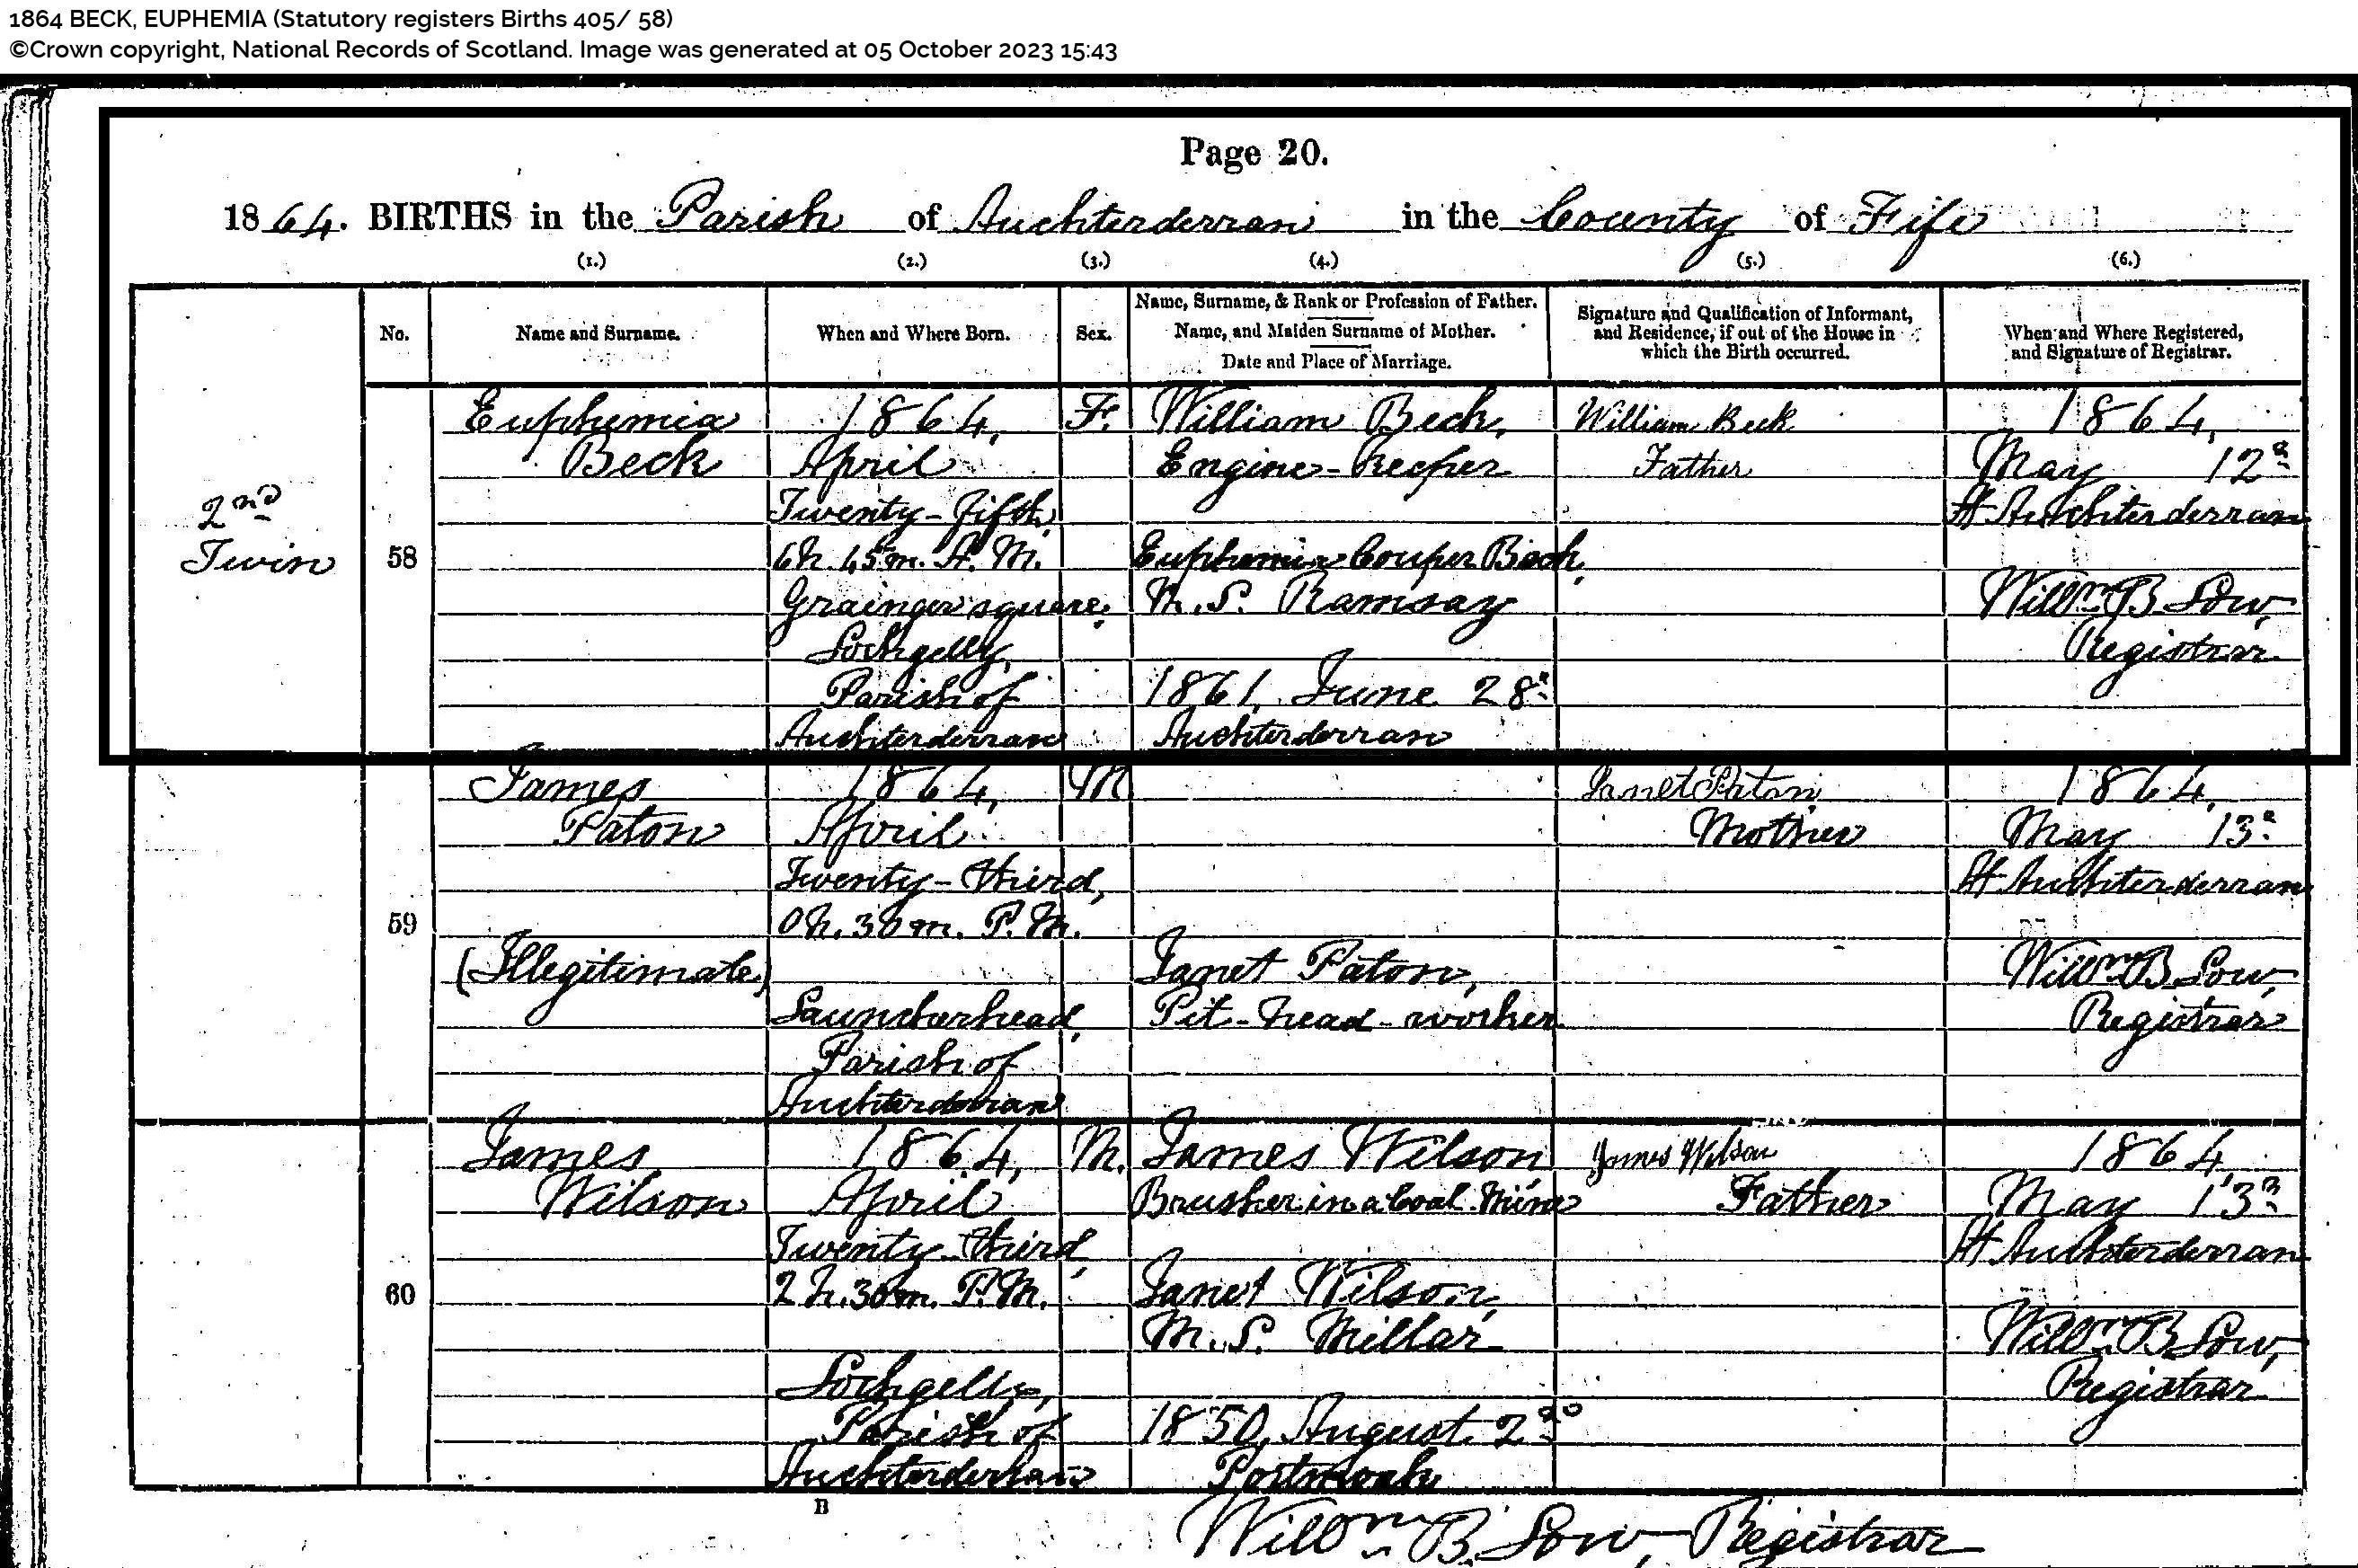 1864 BECK, EUPHEMIA (Statutory registers Births 405/ 58)
©Crown copyright, National Records of Scotland. Image was generated at 05 October 2023 15:43
Page 20.
1864. BIRTHS in the Parish of Auchterderran in the County of Fife
(1.) (2.) (3.) (4.) (5.) (6.)
No.
Name and Surname.
When and Where Born.
Sex.
Name, Surname, & Rank or Profession of Father.
Name, and Maiden Surname of Mother.
Date and Place of Marriage.
Signature and Qualification of Informant,
and Residence, if out of the House in
which the Birth occurred.
When and Where Registered,
and Signature of Registrar.
2nd
Twin
58
Euphemia
Beck
1864,
April
Twenty-fifth,
6h. 45m. A.M.
Grainger square,
Lochgelly,
Parish of
Auchterderran
F.
William Beck,
Engine-Keeper
Euphemia Couper Beck,
M.S. Ramsay
1861, June 28th
Auchterderran
William Beck
Father
1864,
May 12th
At Auchterderran
Willm B. Low,
Registrar
59
James
Paton
(Illegitimate)
1864,
April
Twenty-third,
0h. 30m. P.M.
Launcherhead,
Parish of
Auchterderran
M
Janet Paton,
Pit-head-worker
Janet Paton
Mother
1864,
May 13th
At Auchterderran
Willm B. Low,
Registrar
60
James
Wilson
1864,
April
Twenty-third,
2h. 30m. P.M.
Lochgelly,
Parish of
Auchterderran
M.
James Wilson
Brusher in a Coal Mine
Janet Wilson,
M.S. Millar
1850, August 2nd
Portmoak
James Wilson
Father
1864,
May 13th
At Auchterderran
Willm B. Low,
Registrar
B
Willm B. Low, Registrar